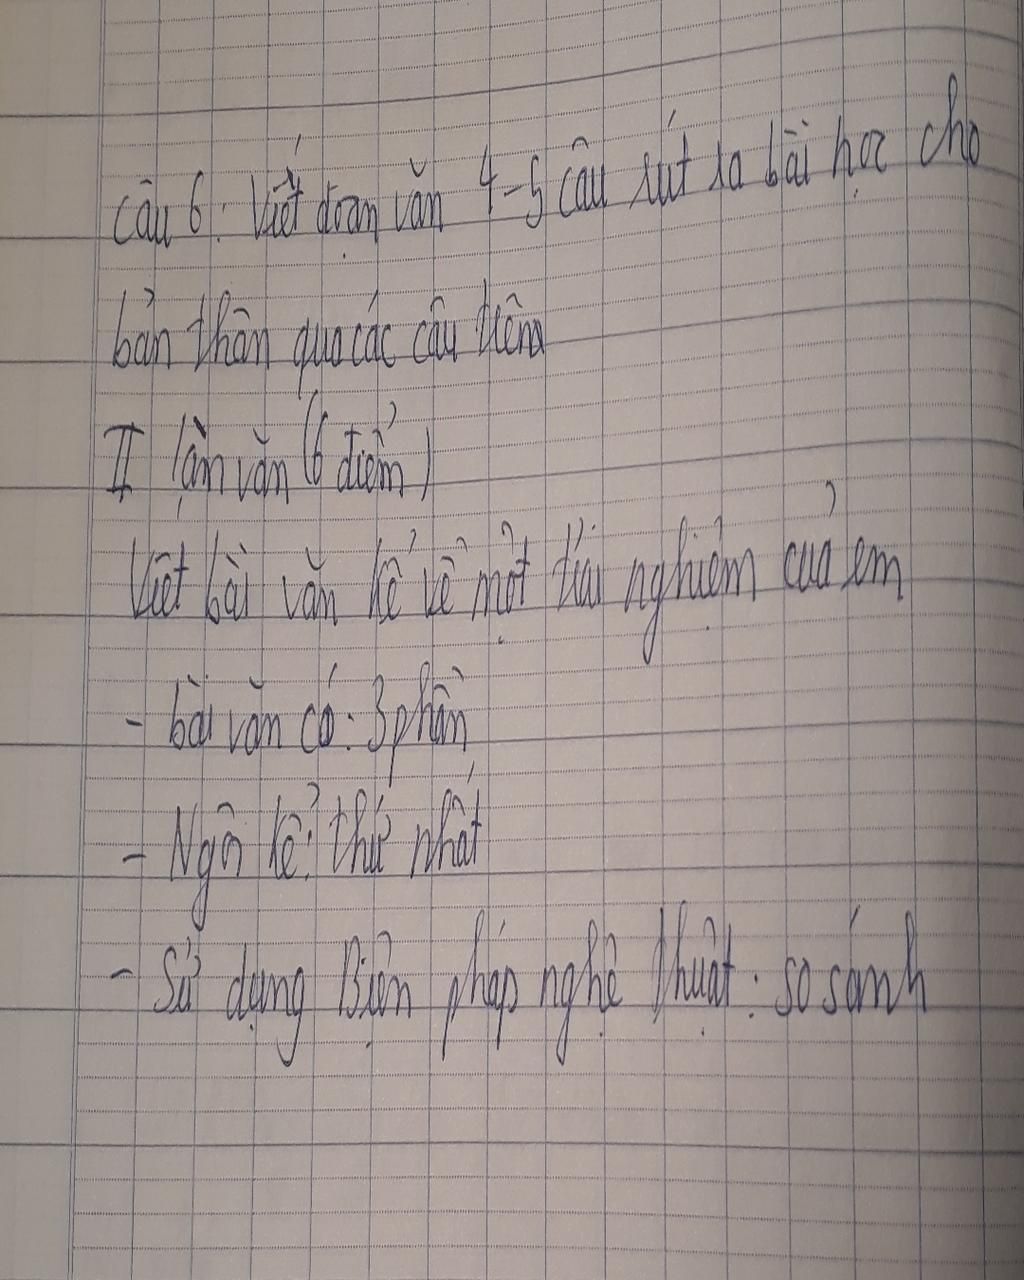 Câu 6: Viết đoạn văn 4-5 câu rút ra bài học cho
bản thân qua các câu trên
II làm văn (6 điểm)
Viết bài văn kể về một trải nghiệm của em
- bài văn có: 3 phần
- Ngôi kể: thứ nhất
- Sử dụng Biện pháp nghệ thuật: so sánh